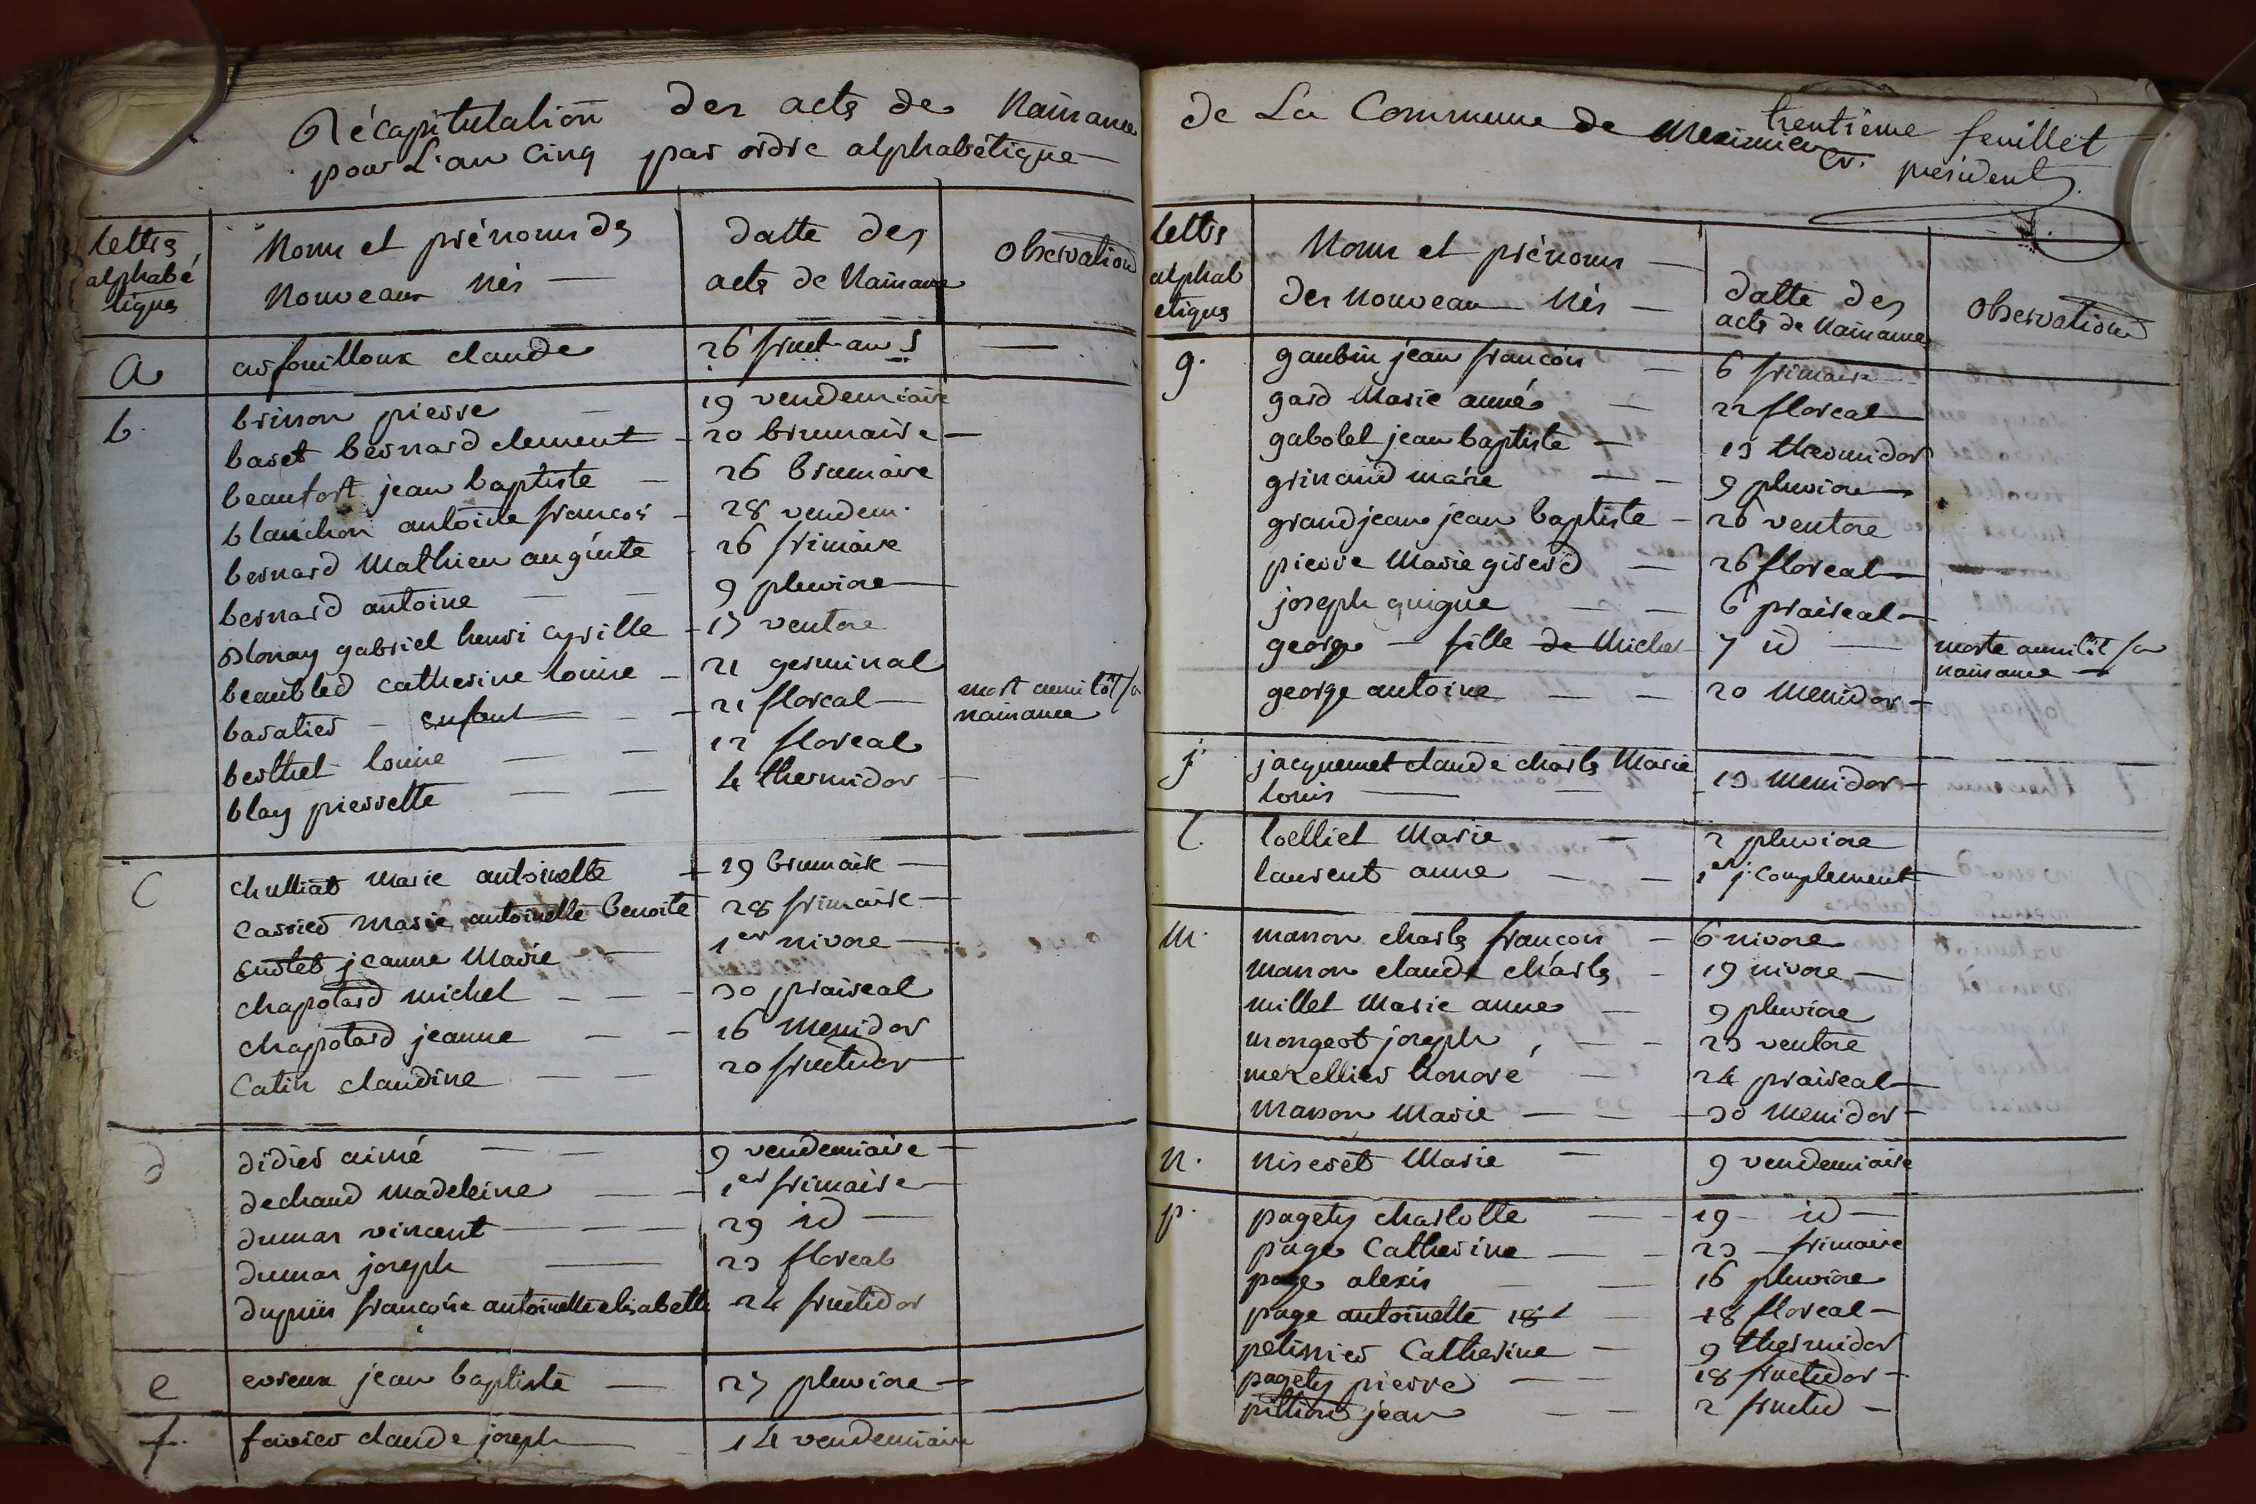 Récapitulation des acts de Naissance
pour L'an Cinq par ordre alphabétique
lettrs alphabé tiques
Noms et prénoms ds Nouveaux Nés
datte des acts de Naissance
observations
a arfouilloux claude 26 fruct. an 5
b. brisson pierre 19 vendemiaire
baret bernard clement 20 brumaire
beaufort jean baptiste 26 brumaire
blanchon antoine françois 28 vendem.
bernard Mathieu auguste 26 frimaire
bernard antoine 9 pluviose
blonay gabriel henri cyrille 17 ventose
beaubled catherine louise 21 germinal
baratier - enfant 21 floreal mort aussitôt sa
naissance
berthet louise 12 floreal
blay pierrette 4 thermidor
C chulliat marie antoinette 29 brumaire
carrier marie antoinette benoite 28 frimaire
curtet jeanne Marie 1er nivose
chapotard michel 30 praireal
chapotard jeanne 16 Messidor
Catin claudine 20 fructidor
d didier aimé 9 vendemiaire
dechaud Madeleine 1er frimaire
dumas vincent 29 id
dumas joseph 23 floreal
dupuis françoise antoinette elisabette 24 fructidor
e evreux jean baptiste 27 pluviose
f. favier claude joseph 14 vendemiaire
trentième feuillet
de La Commune de Meximieux
président
lettrs alphab etiques
Noms et prénoms des Nouveau Nés
datte des acts de Naissance
observations
g. gaubin jean françois 6 frimaire
gard Marie anne 22 floreal
gabolet jean baptiste 13 thermidor
grinand marie 9 pluviose
grandjean jean baptiste 26 ventose
pierre Marie girerd 26 floreal
joseph guigue 6 praireal
george - fille de Michel 7 id morte aussitôt sa
naissance
george antoine 20 Messidor
j jacquemet claude charls Marie
louis 13 Messidor
l. loelliet Marie 2 pluviose
laurent anne 1er j. complement
m. masson charls françois 6 nivose
masson claude charls 19 nivose
millet Marie anne 9 pluviose
mongeot joseph 23 ventose
mezellier honoré 24 praireal
masson Marie 30 Messidor
n. niseret Marie 9 vendemiaire
p. pagety charlotte 19 id
page Catherine 23 frimaire
page alexis 16 pluviose
page antoinette 18 18 floreal
petissier Catherine 9 thermidor
pagety pierre 18 fructidor
pillion jean 2 fructid